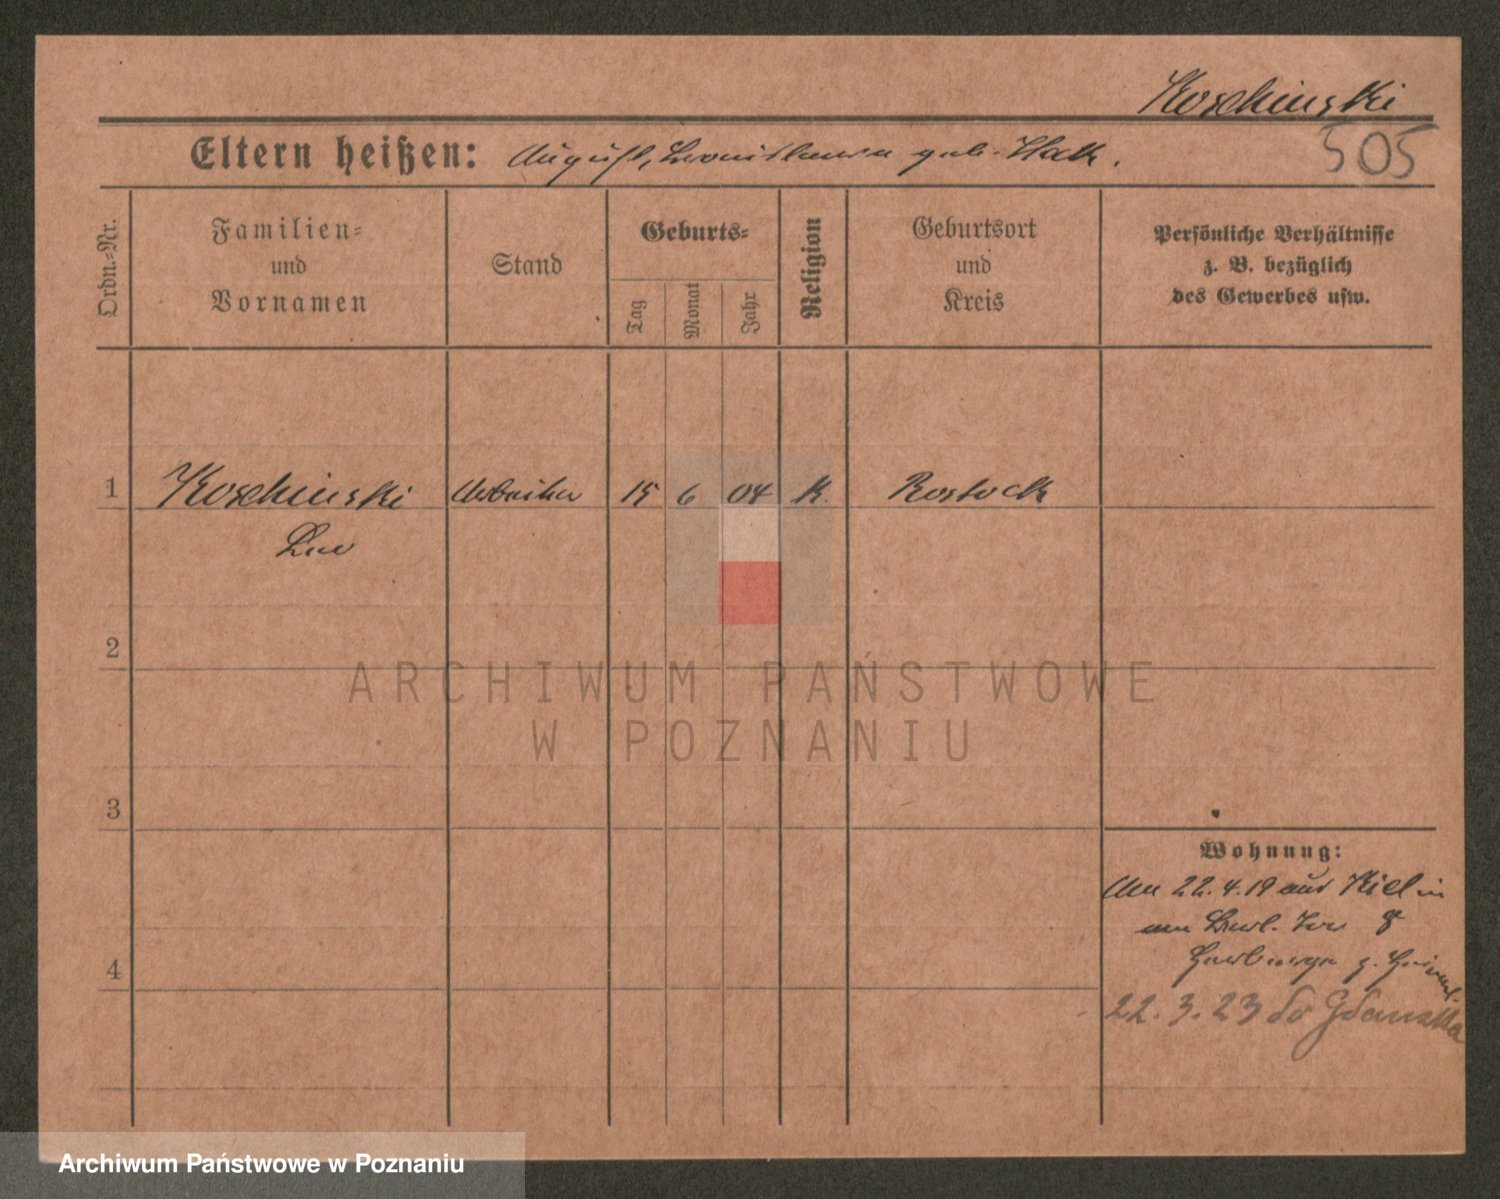 Koschinski
505
Eltern heißen: August, Bronislawa geb. Hak.
Ordn.-Nr.
Familien- und Vornamen
Stand
Geburts-
Tag
Monat
Jahr
Religion
Geburtsort und Kreis
Persönliche Verhältnisse
z. B. bezüglich
des Gewerbes usw.
1 Koschinski Arbeiter 15 6 04 K. Rostock
Leo
2
3
4
Wohnung:
22.4.19 aus Kiel in
Berl. Tor 8
Herberge z. Heimat.
22.3.23 do Gdanska
ARCHIWUM PAŃSTWOWE
W POZNANIU
Archiwum Państwowe w Poznaniu